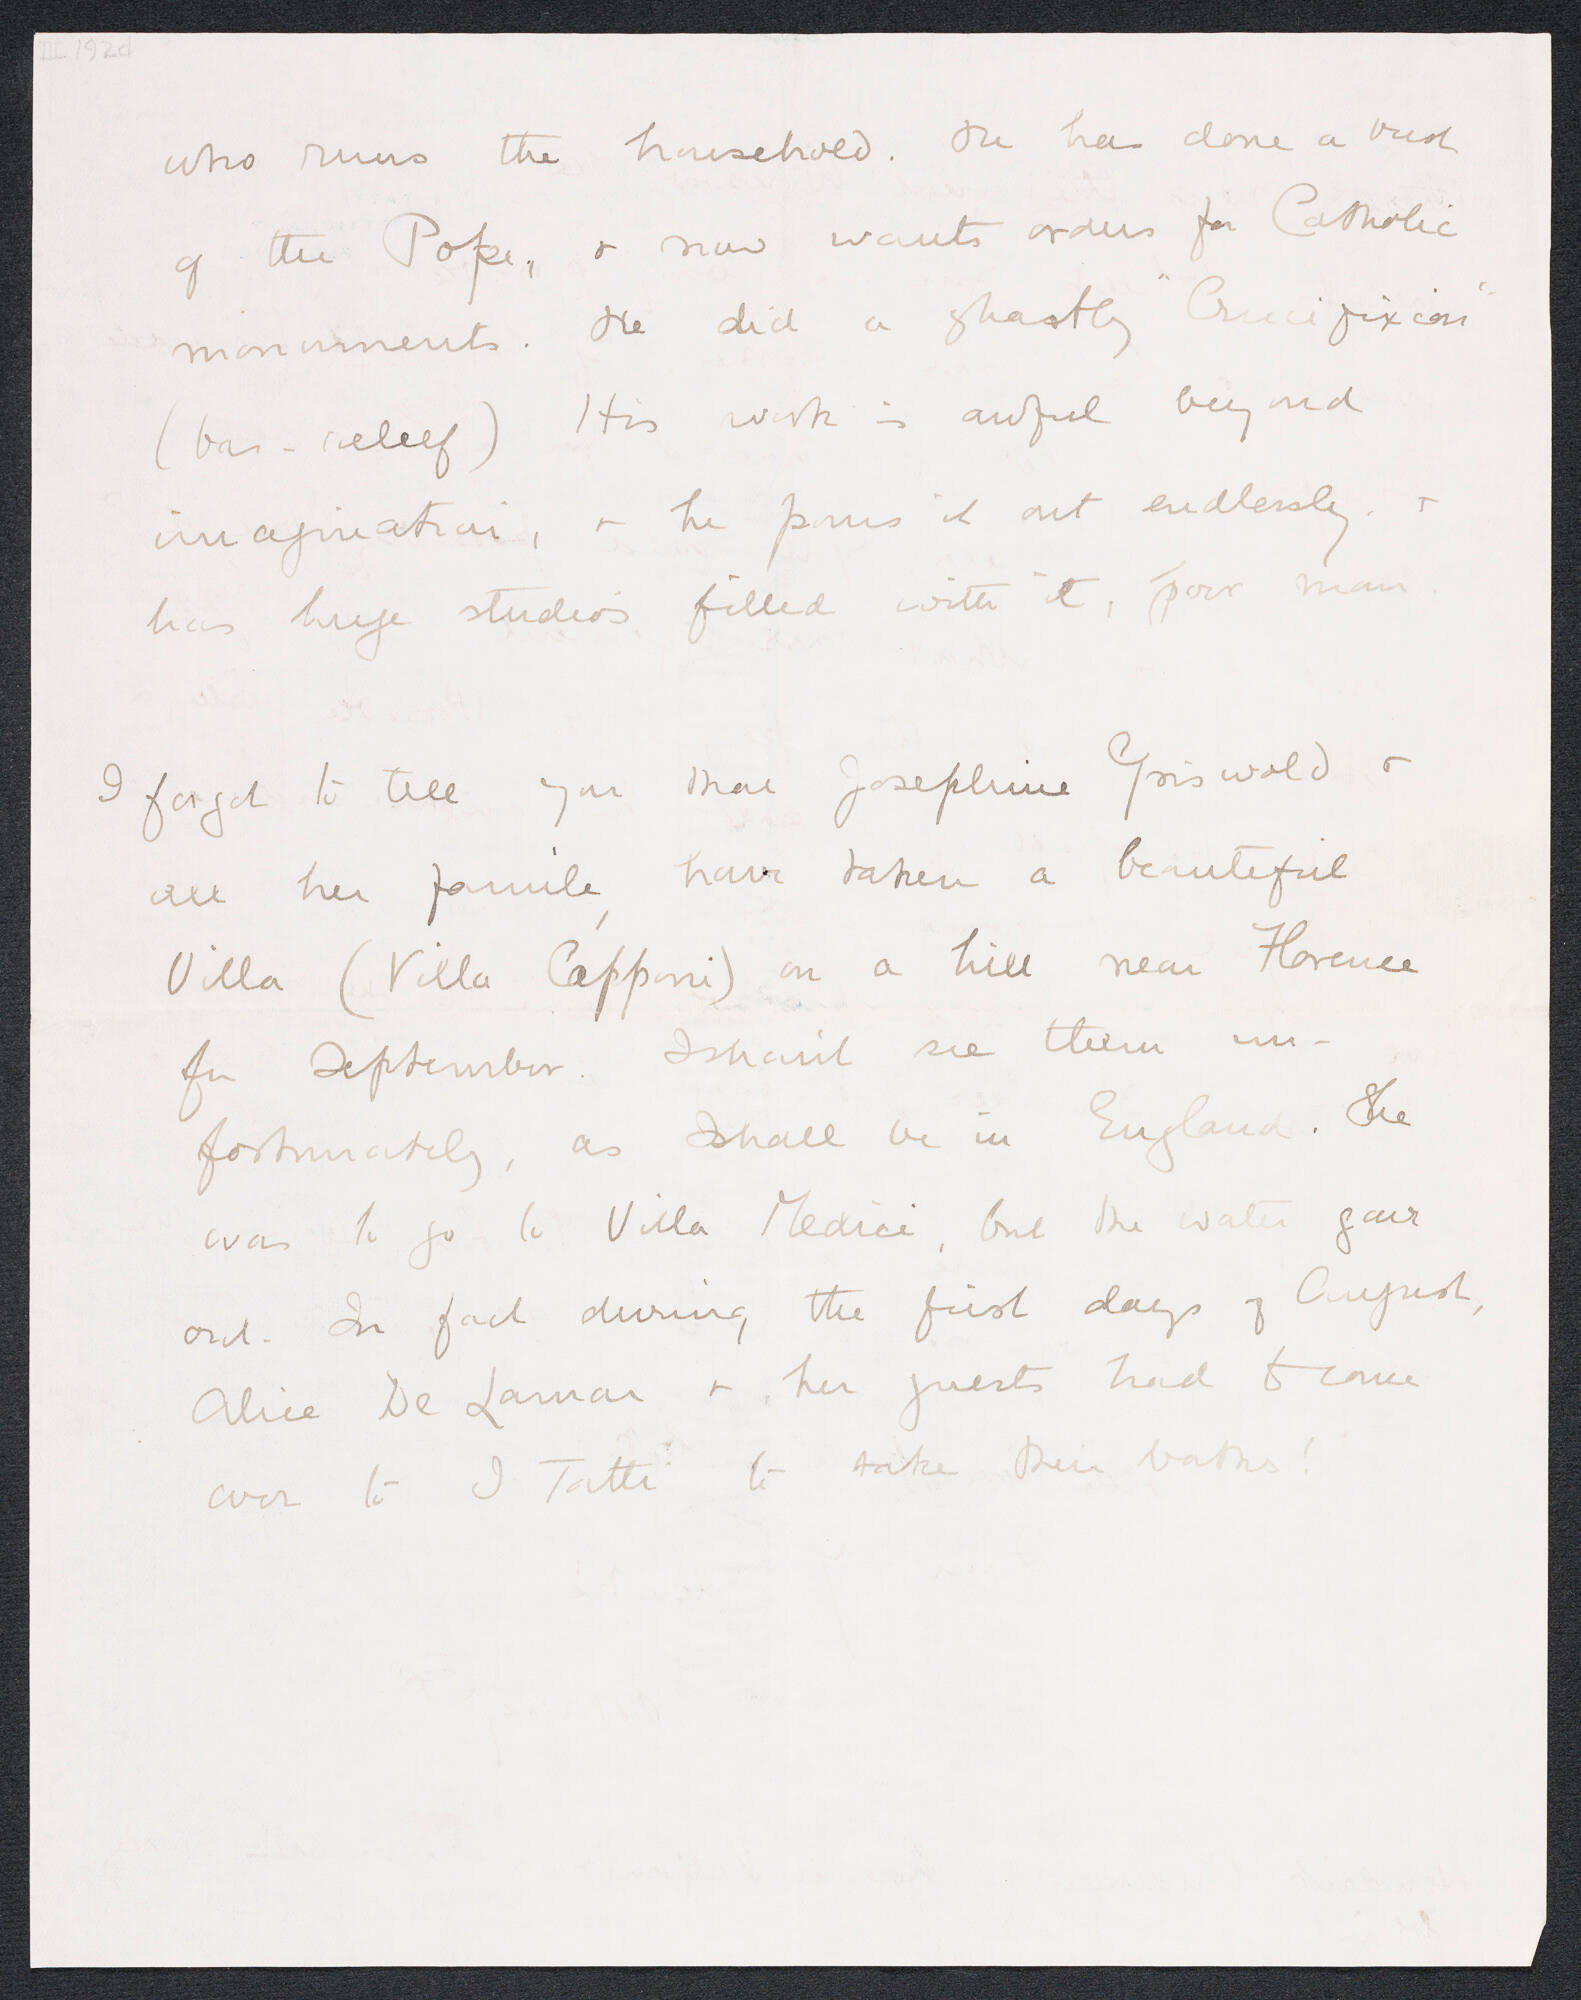 III 192d
who runs the household. He has done a bust
of the Pope, & now wants orders for Catholic
monuments. He did a ghastly "Crucifixion"
(bas-relief) His work is awful beyond
imagination, & he pours it out endlessly. &
has huge studios filled with it, poor man.
I forgot to tell you that Josephine Griswold &
all her family have taken a beautiful
Villa (Villa Capponi) on a hill near Florence
for September. I shan't see them un-
fortunately, as I shall be in England. She
was to go to Villa Medici, but the water gave
out. In fact during the first days of August,
Alice De Lamar & her guests had to come
over to I Tatti to take their baths!